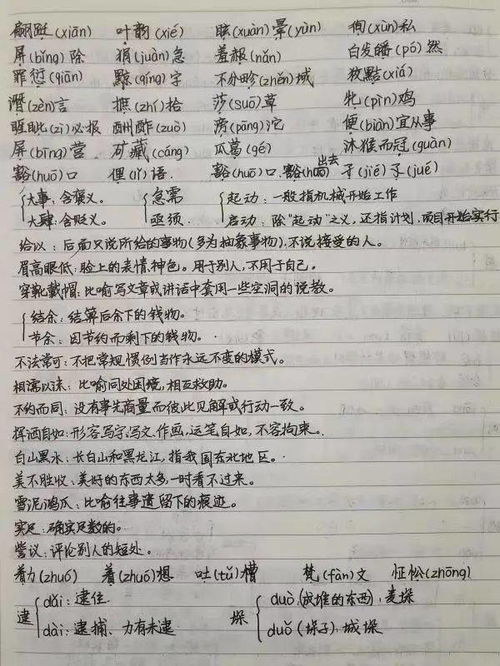 翩跹(xiān) 叶韵(xié) 眩(xuàn)晕(yùn) 徇(xùn)私
屏(bǐng)除 狷(juàn)急 羞赧(nǎn) 白发皤(pó)然
罪愆(qiān) 黥(qíng)字 不分畛(zhěn)域 狡黠(xiá)
谮(zèn)言 摭(zhí)拾 莎(suō)草 牝(pìn)鸡
睚眦(zì)必报 酬酢(zuò) 滂(pāng)沱 便(biàn)宜从事
屏(bīng)营 矿藏(cáng) 瓜葛(gé) 沐猴而冠(guàn)
豁(huō)口 俚(lǐ)语 豁(huō)口 豁(huō)出去 孑(jié)孓(jué)
大事:含褒义。 急需 起动:一般指机械开始工作
大肆:含贬义。 亟须 启动:除"起动"之义,还指计划、项目开始实行
给以:后面只说所给的事物(多为抽象事物),不说接受的人。
眉高眼低:脸上的表情,神色。用于别人,不用于自己。
穿靴戴帽:比喻写文章或讲话中套用一些空洞的说教。
结余:结算后余下的钱物。
节余:因节约而剩下的钱物。
不法常可:不把常规惯例当作永远不变的模式。
相濡以沫:比喻同处困境,相互救助。
不约而同:没有事先商量而彼此见解或行动一致。
挥洒自如:形容写字,写文,作画,运笔自如,不容拘束。
白山黑水:长白山和黑龙江,指我国东北地区。
美不胜收:美好的东西太多,一时看不过来。
雪泥鸿爪:比喻往事遗留下的痕迹。
实足:确实足数的。
訾议:评论别人的短处。
着力(zhuó) 着(zhuó)想 吐(tǔ)槽 梵(fàn)文 怔忪(zhōng)
逮 dǎi:逮住 垛 duò(成堆的东西):麦垛
dài:逮捕、力有未逮 duǒ(垛子):城垛